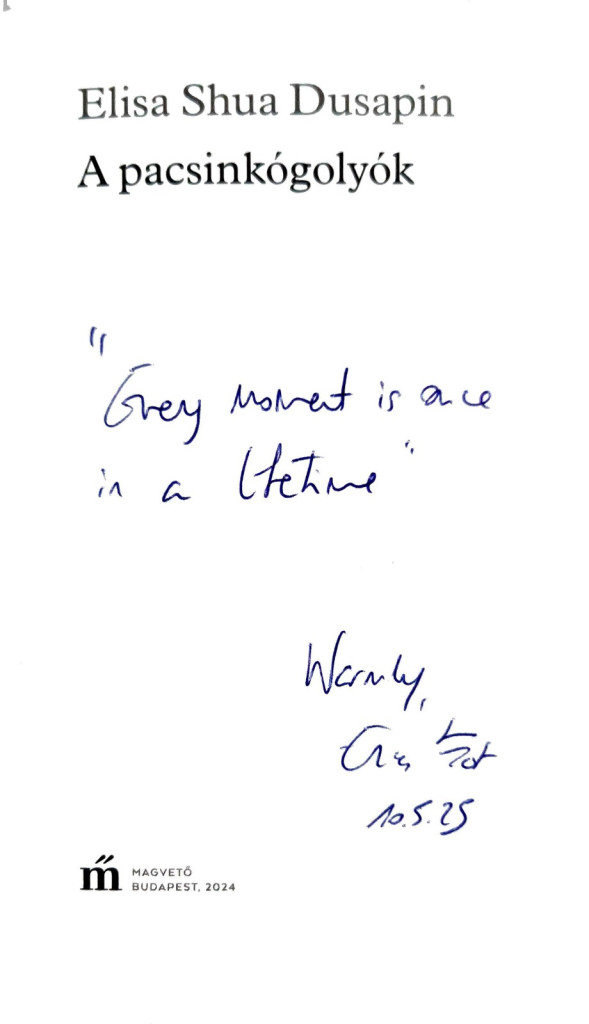 Elisa Shua Dusapin
A pacsinkógolyók
"Every moment is once
in a lifetime"
Warmly,
10.5.25
MAGVETŐ
BUDAPEST, 2024